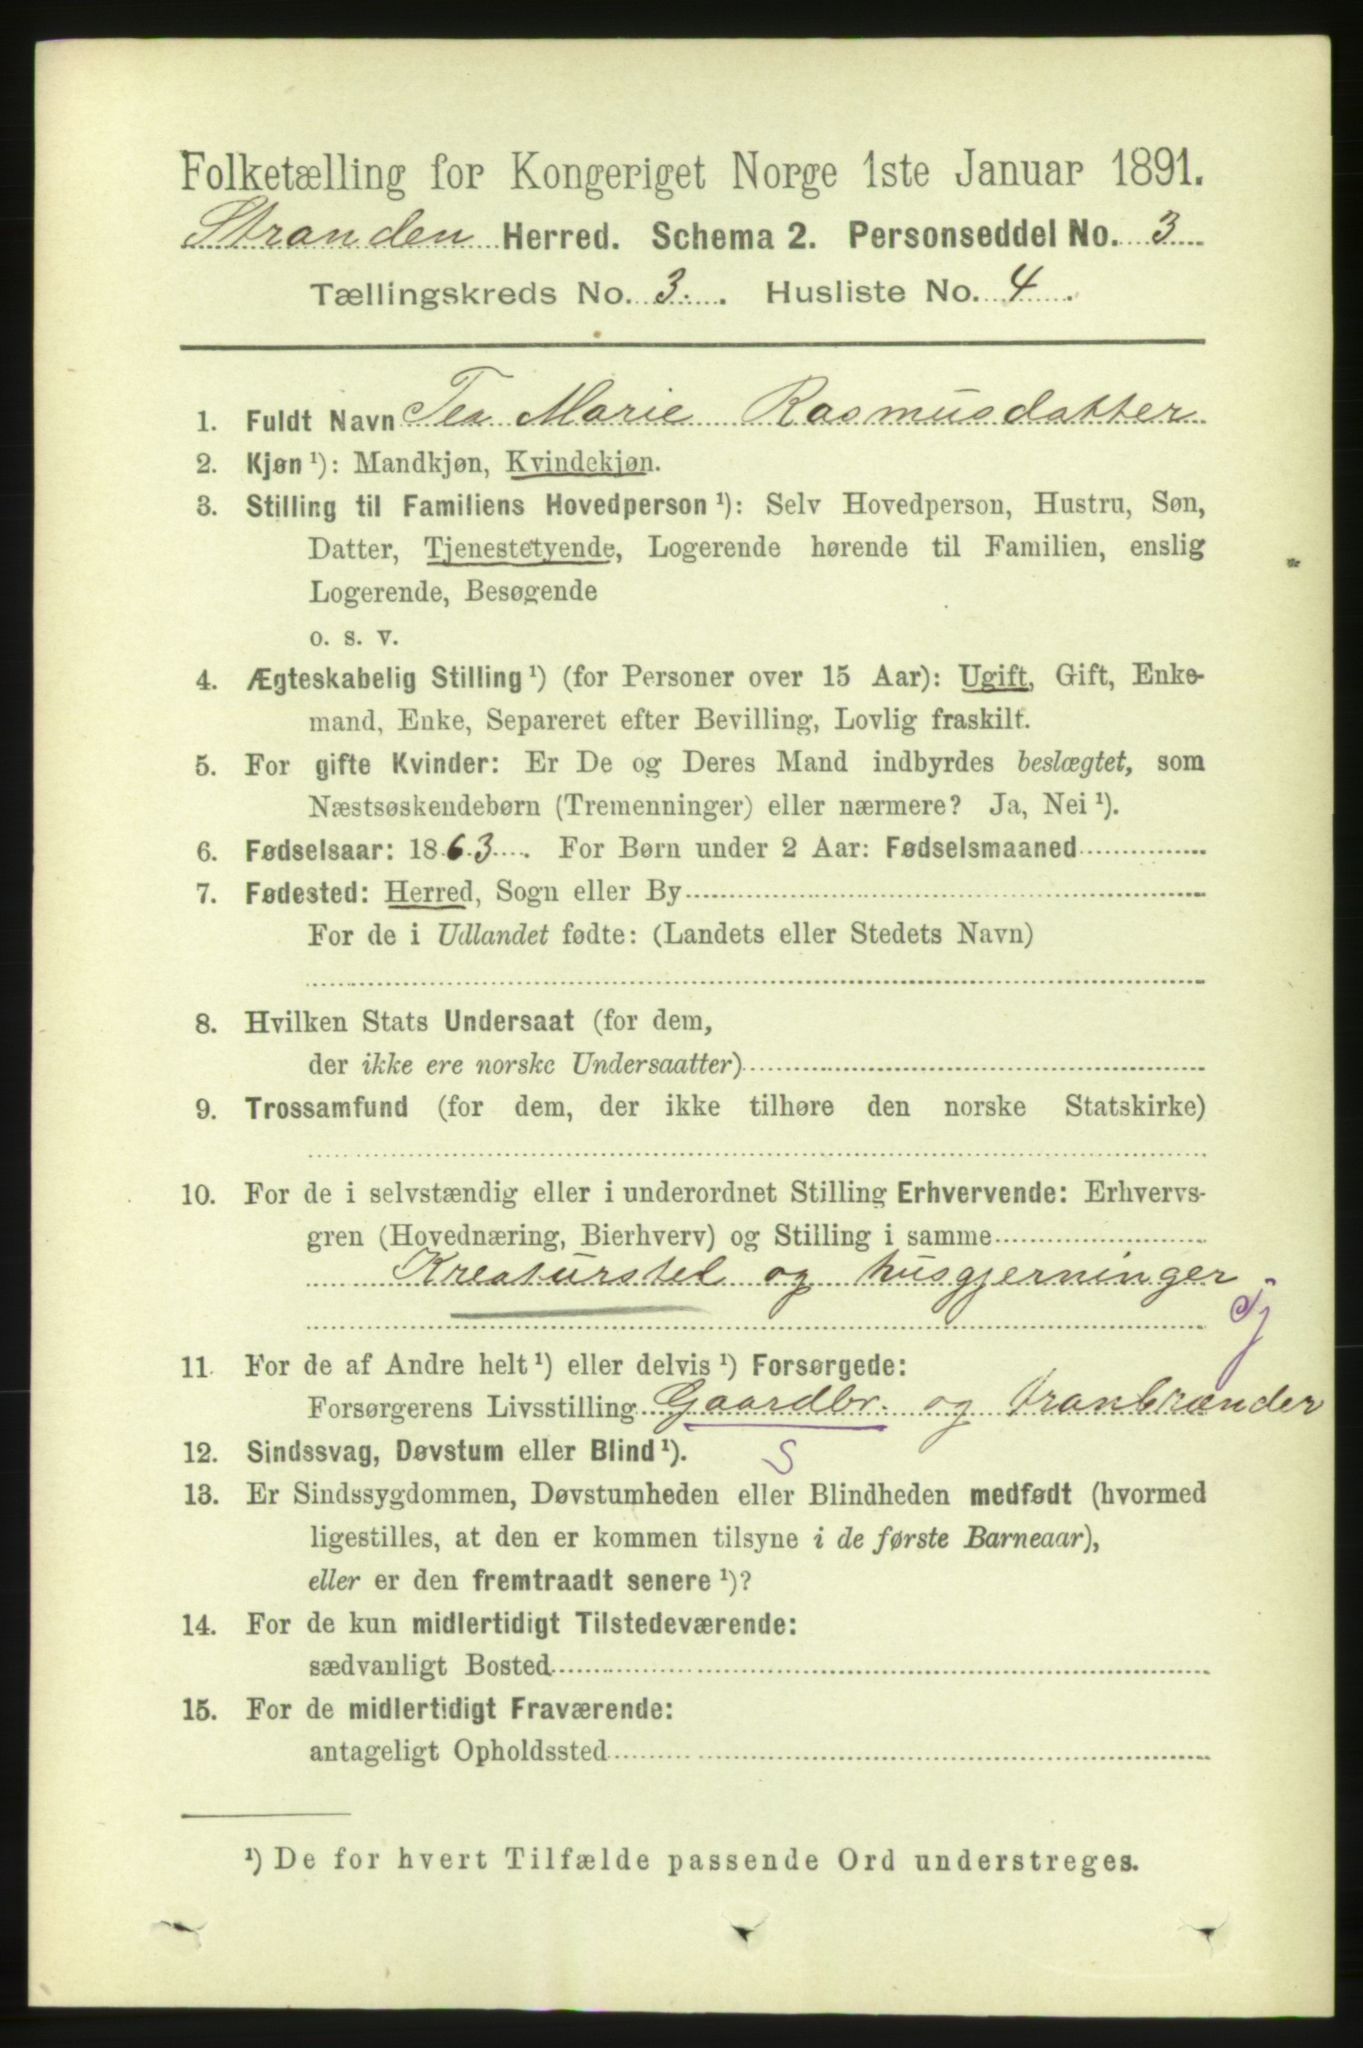 Folketælling for Kongeriget Norge 1ste Januar 1891.
Stranden Herred. Schema 2. Personseddel No. 3
Tællingskreds No. 3. Husliste No. 4.
1. Fuldt Navn Tea Marie Rasmusdatter
2. Kjøn ¹): Mandkjøn, Kvindekjøn.
3. Stilling til Familiens Hovedperson ¹): Selv Hovedperson, Hustru, Søn,
Datter, Tjenestetyende, Logerende hørende til Familien, enslig
Logerende, Besøgende
o. s. v.
4. Ægteskabelig Stilling ¹) (for Personer over 15 Aar): Ugift, Gift, Enke-
mand, Enke, Separeret efter Bevilling, Lovlig fraskilt.
5. For gifte Kvinder: Er De og Deres Mand indbyrdes beslægtet, som
Næstsøskendebørn (Tremenninger) eller nærmere? Ja, Nei ¹).
6. Fødselsaar: 1863. For Børn under 2 Aar: Fødselsmaaned
7. Fødested: Herred, Sogn eller By
For de i Udlandet fødte: (Landets eller Stedets Navn)
8. Hvilken Stats Undersaat (for dem,
der ikke ere norske Undersaatter)
9. Trossamfund (for dem, der ikke tilhøre den norske Statskirke)
10. For de i selvstændig eller i underordnet Stilling Erhvervende: Erhvervs-
gren (Hovednæring, Bierhverv) og Stilling i samme
Kreaturstel og husgjerninger
tj
11. For de af Andre helt ¹) eller delvis ¹) Forsørgede:
Forsørgerens Livsstilling Gaardbr. og tranbrænder
12. Sindssvag, Døvstum eller Blind ¹). S
13. Er Sindssygdommen, Døvstumheden eller Blindheden medfødt (hvormed
ligestilles, at den er kommen tilsyne i de første Barneaar),
eller er den fremtraadt senere ¹)?
14. For de kun midlertidigt Tilstedeværende:
sædvanligt Bosted
15. For de midlertidigt Fraværende:
antageligt Opholdssted
¹) De for hvert Tilfælde passende Ord understreges.